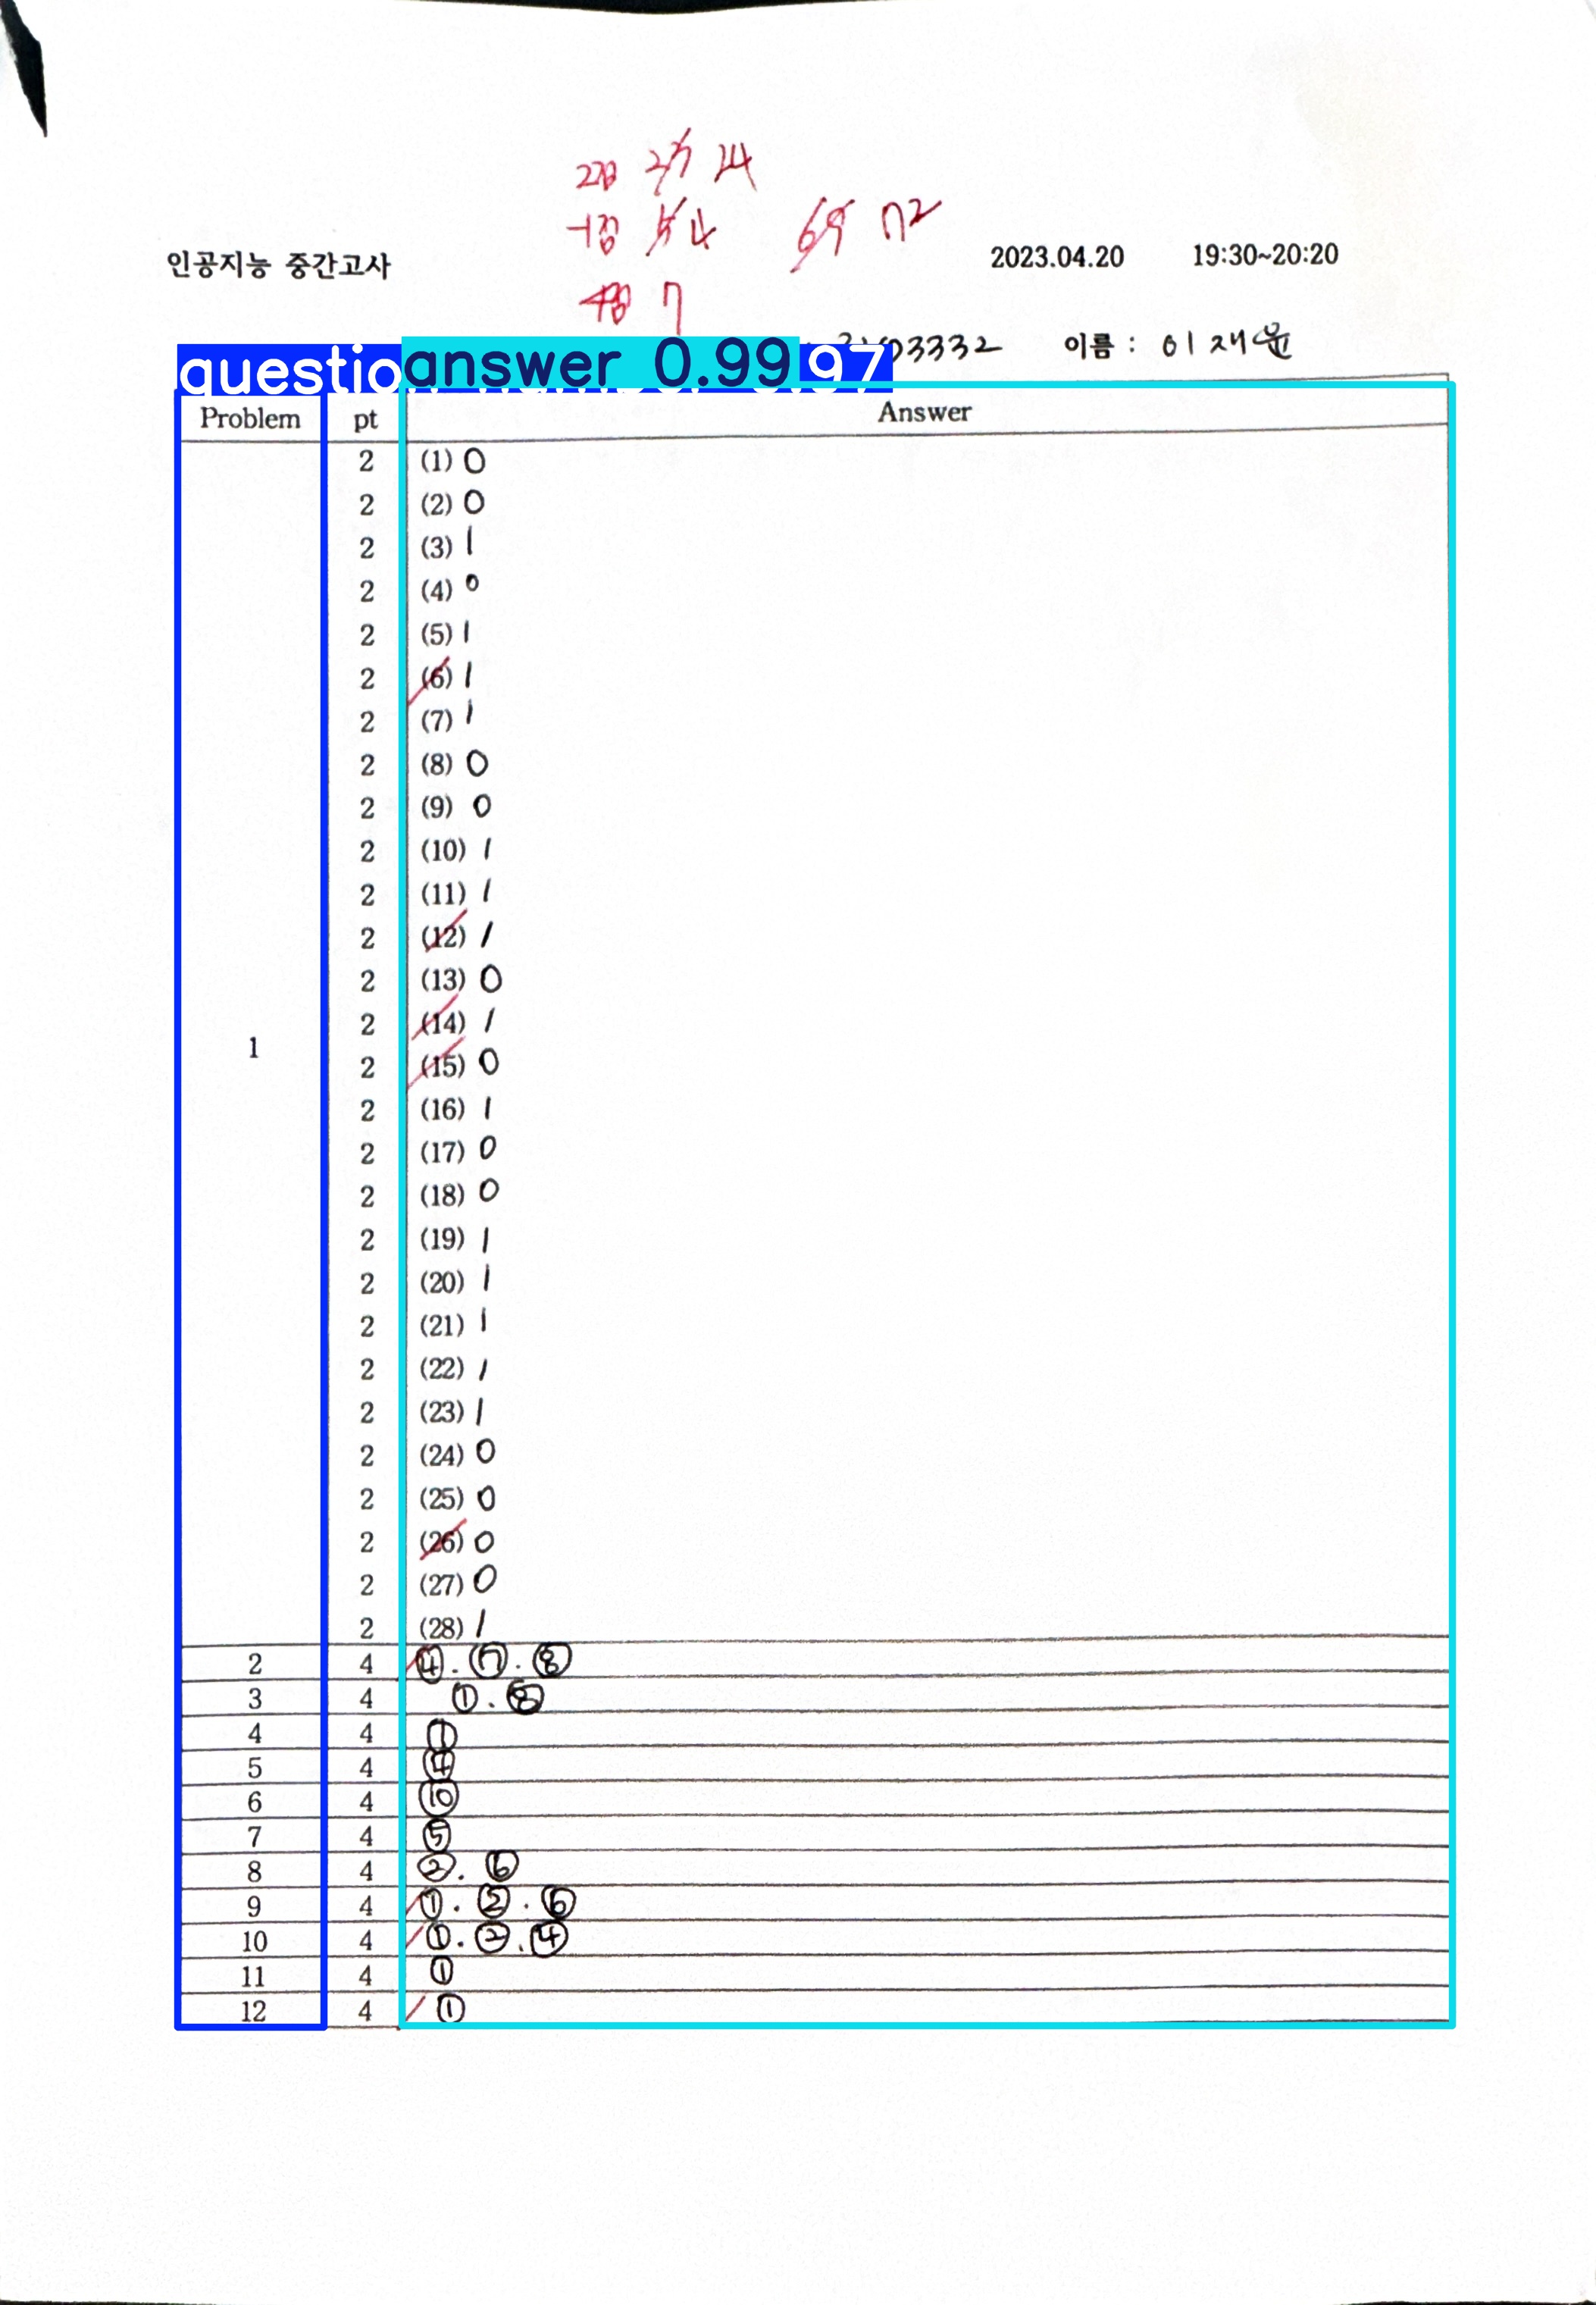 2점 27 24
-1점 5 4 69 72
4점 7
인공지능 중간고사 2023.04.20 19:30~20:20
03332 이름 : 이재윤
questio answer 0.99 97
Problem pt Answer
2 (1) 0
2 (2) 0
2 (3) 1
2 (4) 0
2 (5) 1
2 (6) 1
2 (7) 1
2 (8) 0
2 (9) 0
2 (10) 1
2 (11) 1
2 (12) 1
2 (13) 0
2 (14) 1
1
2 (15) 0
2 (16) 1
2 (17) 0
2 (18) 0
2 (19) 1
2 (20) 1
2 (21) 1
2 (22) 1
2 (23) 1
2 (24) 0
2 (25) 0
2 (26) 0
2 (27) 0
2 (28) 1
2 4 ④. ⑦. ⑧
3 4 ①. ⑧
4 4 ①
5 4 ④
6 4 ⑩
7 4 ⑤
8 4 ②. ⑥
9 4 ①. ②. ⑥
10 4 ①. ②. ④
11 4 ①
12 4 ①